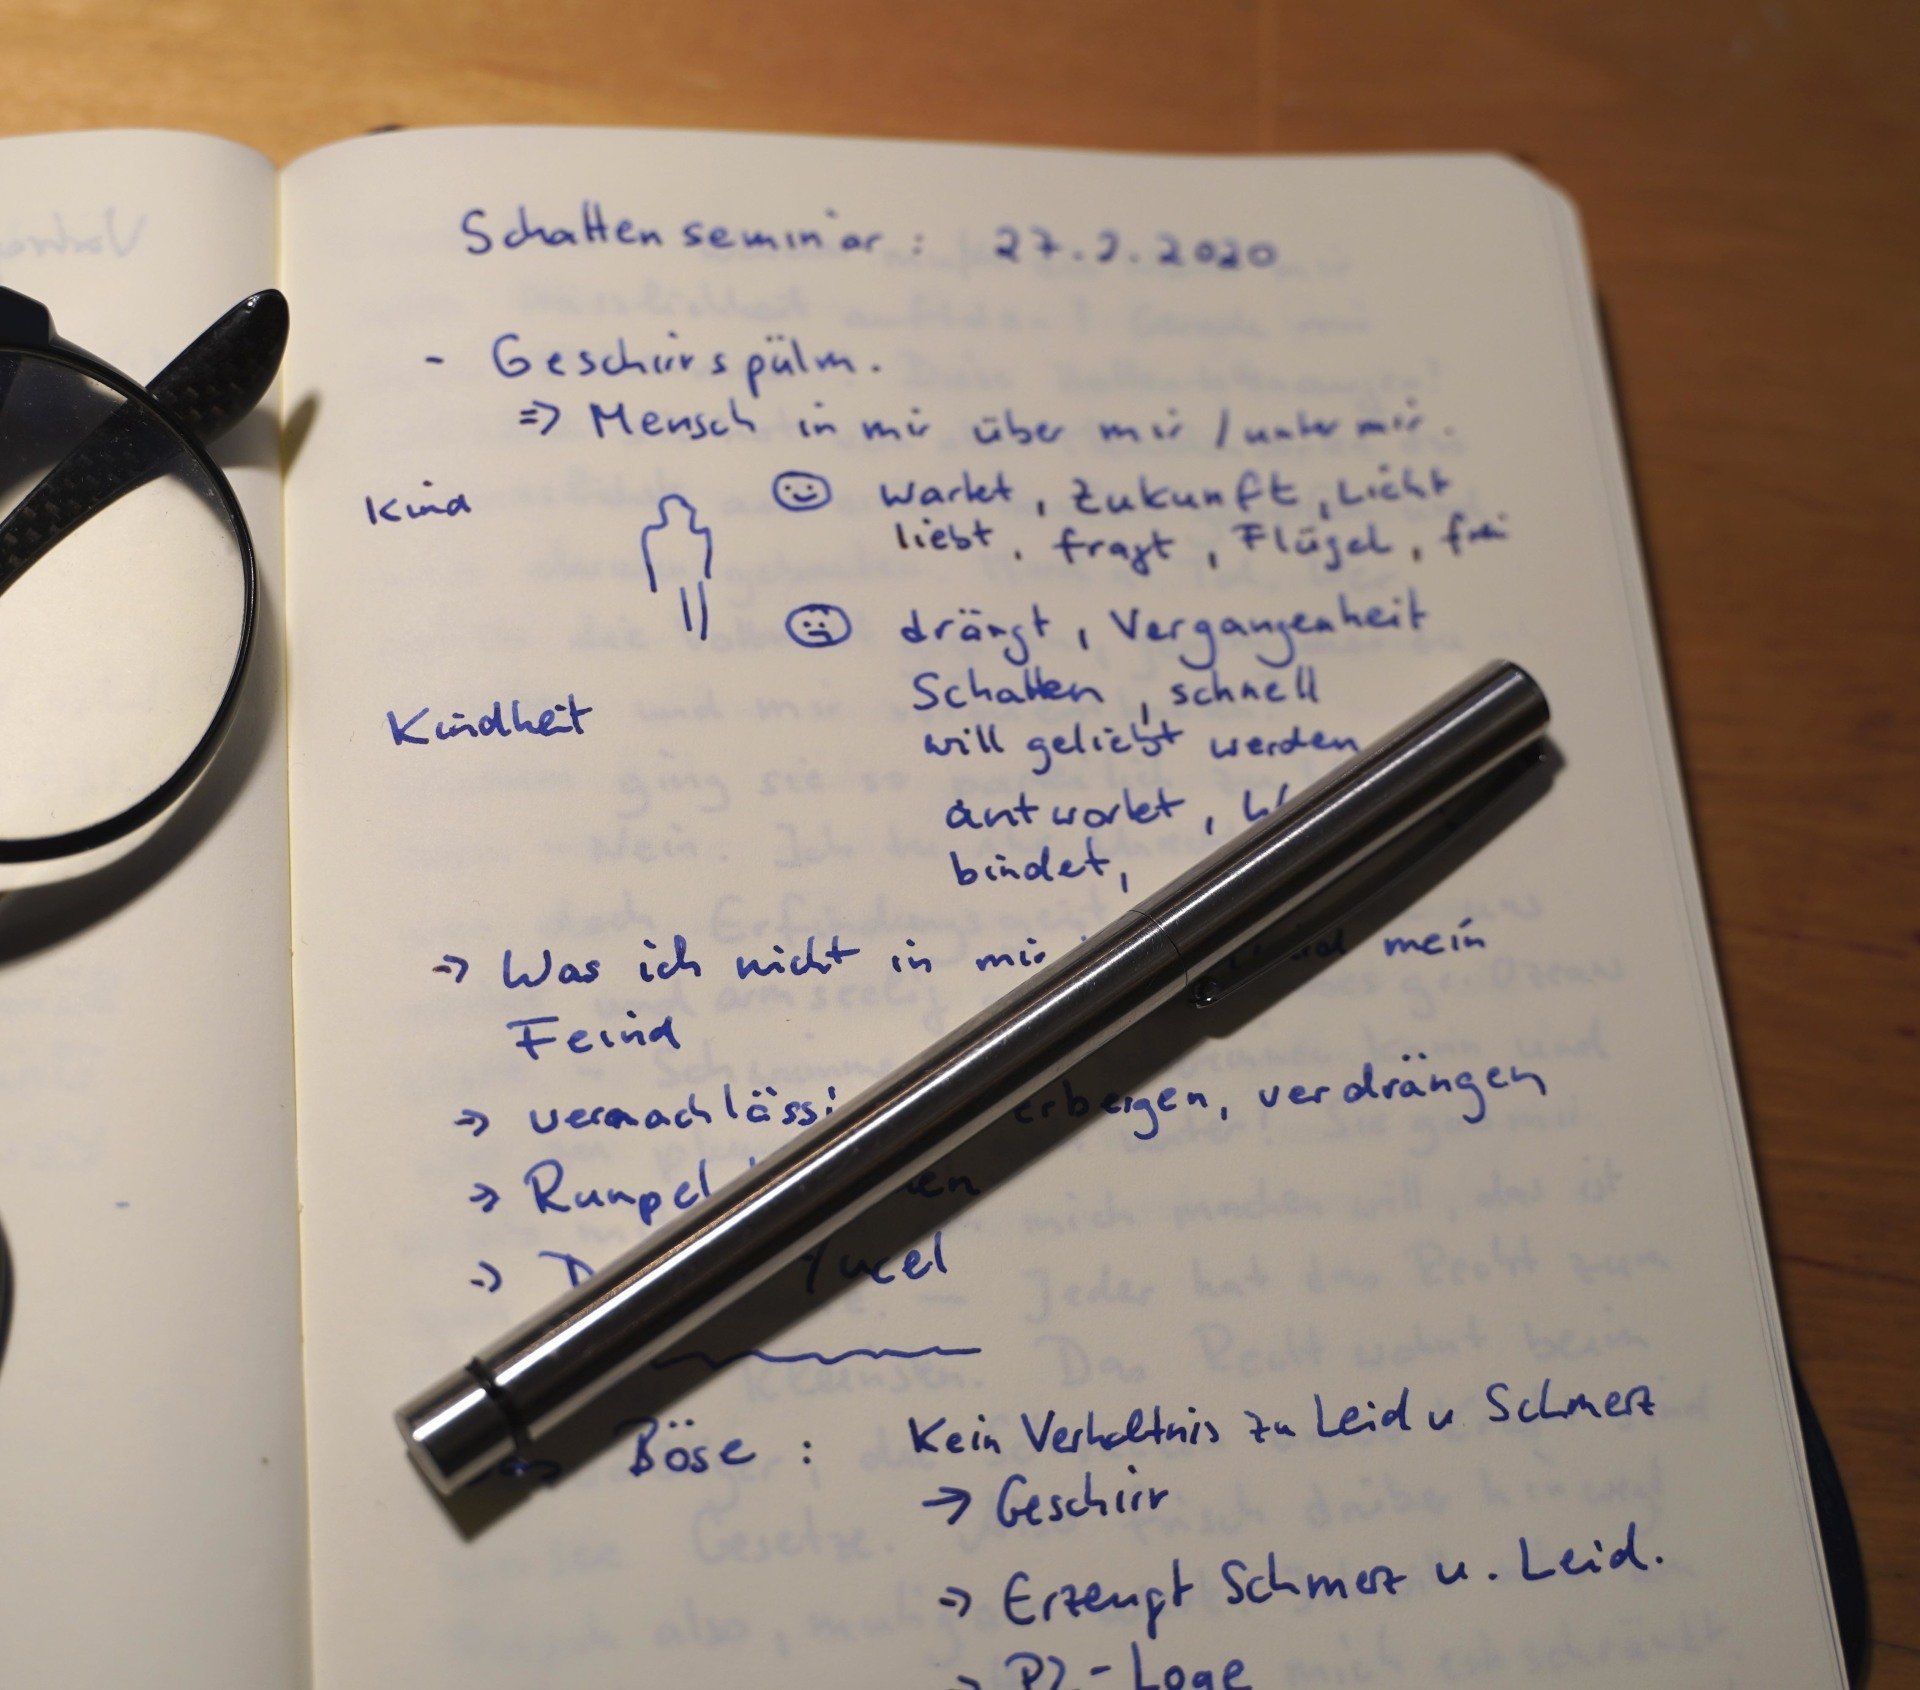 Schattenseminar: 27.2.2020
- Geschirrspülm.
=> Mensch in mir über mir / unter mir.
Kind
wartet, Zukunft, Licht
liebt, fragt, Flügel, frei
drängt, Vergangenheit
Kindheit
Schatten, schnell
will geliebt werden
antwortet,
bindet,
-> Was ich nicht in mir mein
Feind
-> vernachlässi erbergen, verdrängen
-> Rumpel en
-> D Yücel
Böse: Kein Verhältnis zu Leid u Schmerz
-> Geschirr
-> Erzeugt Schmerz u. Leid.
-> P2-Loge